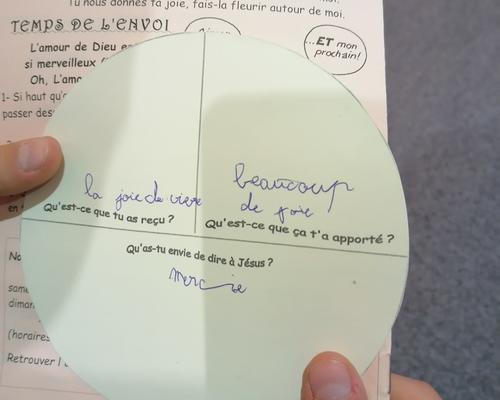 Tu nous donnes ta joie, fais-la fleurir autour de moi.
TEMPS DE L'ENVOI
...ET mon
prochain!
L'amour de Dieu
si merveilleux
Oh, L'amo
1- Si haut qu'o
passer des
la joie de vivre
Qu'est-ce que tu as reçu ?
beaucoup
de joie
Qu'est-ce que ça t'a apporté ?
Qu'as-tu envie de dire à Jésus ?
Mercie
en
No
same
diman
(horaires
Retrouver l